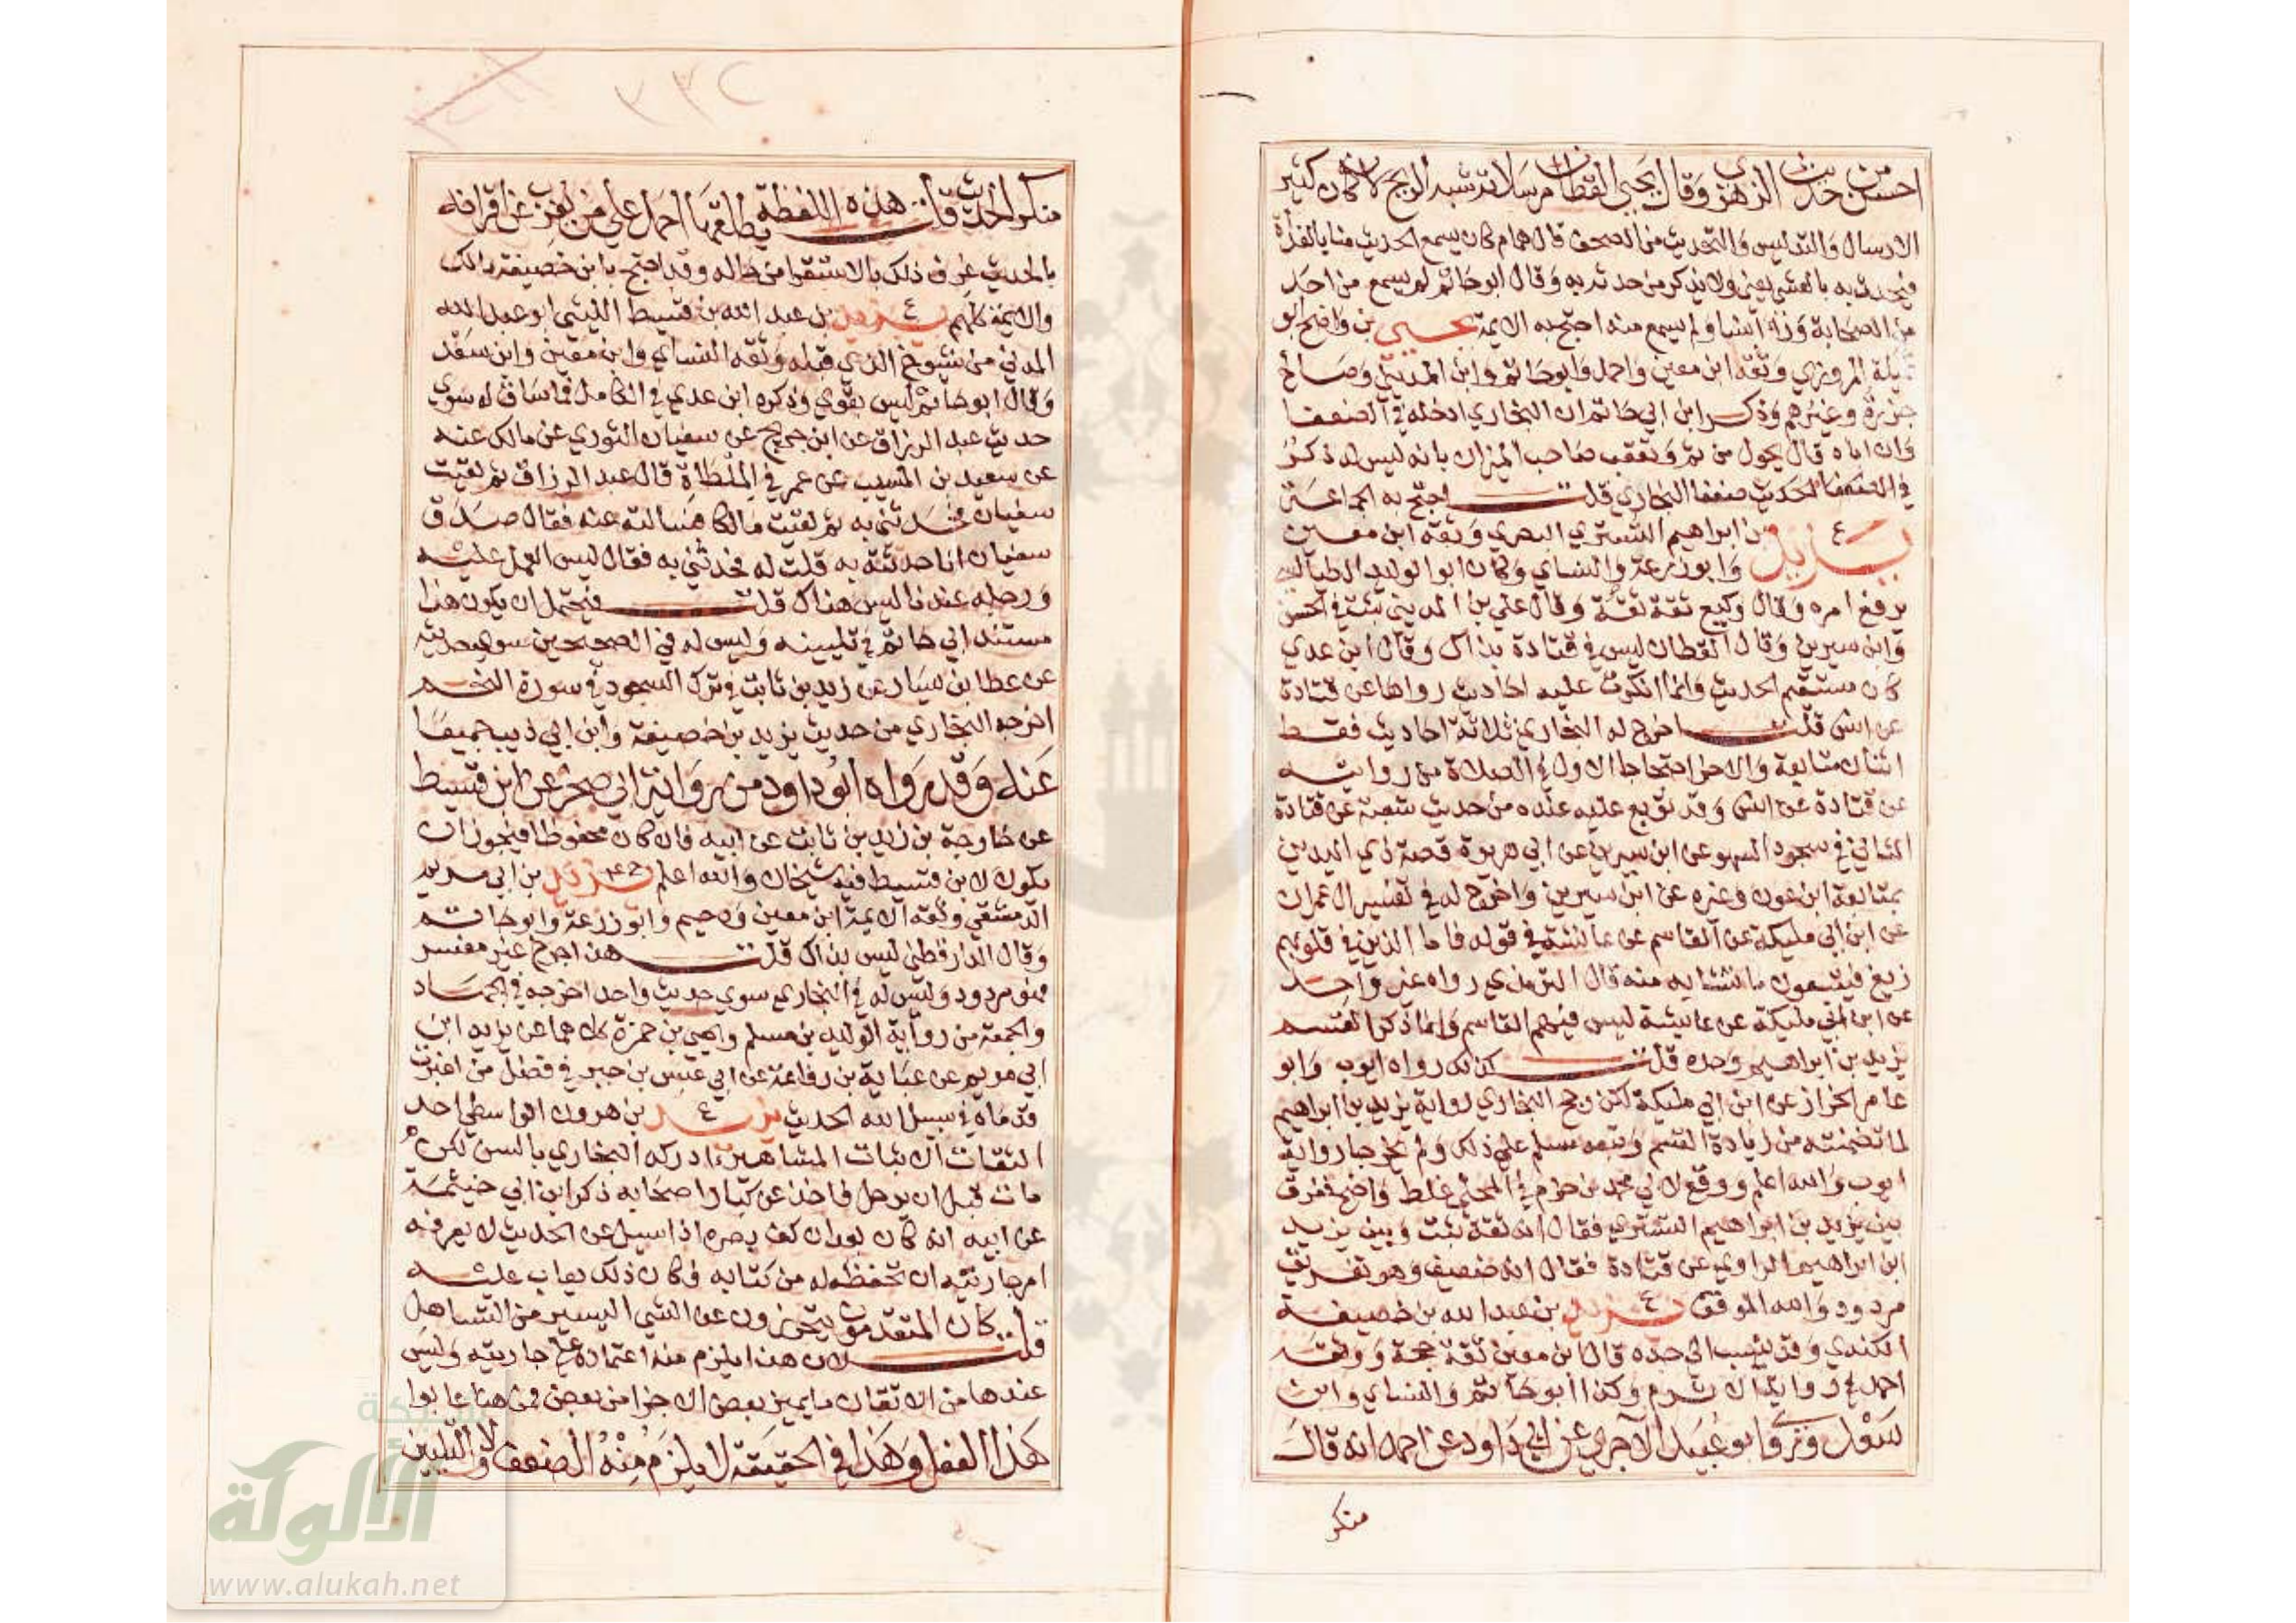 احسن من حديث الزهري وقال يحيى القطان مرسلاته شبه الريح لانه كان كثير
الارسال والتدليس والتحديث من الصحف قال همام كان يسمع الحديث منا بالغداة
فيحدث به بالعشي يعني ولا يذكر من حدثه به وقال ابو حاتم لم يسمع من احد
من الصحابة وراى انسا ولم يسمع منه احتج به الايمة يحيى بن واضح ابو
تميلة المروزي وثقه ابن معين واحمد وابو حاتم وابن المديني وصالح
جزرة وغيرهم وذكر ابن ابي حاتم ان البخاري ادخله في الضعفا
وان اباه قال يحول من ثم وتعقب صاحب الميزان بانه ليس له ذكر
في الضعفا للبخاري قلت احتج به الجماعة
يزيد ع بن ابراهيم التستري البصري وثقه ابن معين
وابو زرعة والنساي وكان ابو الوليد الطيالسي
يرفع امره وقال وكيع ثقة ثقة وقال علي بن المديني ثبت في الحسن
وابن سيرين وقال القطان ليس في قتادة بذاك وقال ابن عدي
كان مستقيم الحديث وانما انكرت عليه احاديث رواها عن قتادة
عن انس قلت اخرج له البخاري ثلاثة احاديث فقط
اثنان متابعة والاخر احتجاجا الاول في الصلاة من روايته
عن قتادة عن انس وقد توبع عليه عنده من حديث شعبة عن قتادة
الثاني في سجود السهو عن ابن سيرين عن ابي هريرة قصة ذي اليدين
بمتابعة ابن عون وغيره عن ابن سيرين واخرج له في تفسير ال عمران
عن ابن ابي مليكة عن القاسم عن عائشة في قوله فاما الذين في قلوبهم
زيغ فيتبعون ما تشابه منه قال الترمذي رواه غير واحد
عن ابن ابي مليكة عن عايشة ليس فيهم القاسم وانما ذكر القسم
يزيد بن ابراهيم وحده قلت كذلك رواه ايوب وابو
عامر الخزاز عن ابن ابي مليكة لكن رجح البخاري رواية يزيد بن ابراهيم
لما تضمنته من زيادة القسم وتبعه مسلم على ذلك ولم يخرجا رواية
ايوب والله اعلم ووقع لابي محمد بن حزم في المحلى غلط واضح ففرق
بين يزيد بن ابراهيم التستري فقال انه ثقة ثبت وبين يزيد
ابن ابراهيم الراوي عن قتادة فقال انه ضعيف وهو تفريق
مردود والله الموفق يزيد ع بن عبد الله بن خصيفة
الكندي وقد ينسب الى جده قال ابن معين ثقة حجة ووثقه
احمد في رواية الاثرم وكذا ابو حاتم والنساي وابن
سعد وروى ابو عبيد الاجري عن ابي داود عن احمد انه قال
منكر
٣٣٢
منكر الحديث قلت هذه اللفظة يطلقها احمد على من يغرب عن اقرانه
بالحديث عرف ذلك بالاستقرا من حاله وقد احتج بابن خصيفة مالك
والائمة كلهم يزيد ع بن عبد الله بن قسيط الليثي ابو عبد الله
المدني من شيوخ الذي قبله وثقه النساي وابن معين وابن سعد
وقال ابو حاتم ليس بقوي وذكره ابن عدي في الكامل فما ساق له سوى
حديث عبد الرزاق عن ابن جريج عن سفيان الثوري عن مالك عنه
عن سعيد بن المسيب عن عمر في الملطاة قال عبد الرزاق ثم لقيت
سفيان فحدثني به ثم لقيت مالكا فسالته عنه فقال صدق
سفيان انا حدثته به قلت له فحدثني به فقال ليس العمل عليه
ورجله عندنا ليس هناك قلت فيحتمل ان يكون هذا
مستند ابي حاتم في تليينه وليس له في الصحيحين سوى حديثه
عن عطا بن يسار عن زيد بن ثابت في ترك السجود في سورة النجم
اخرجه البخاري من حديث يزيد بن خصيفة وابن ابي ذيب جميعا
عنه وقد رواه ابو داود من رواية ابي صخر عن ابن قسيط
عن خارجة بن زيد بن ثابت عن ابيه فان كان محفوظا فيجوز ان
يكون لابن قسيط فيه شيخان والله اعلم يزيد بن ابي مريم
الدمشقي وثقه الايمة ابن معين ودحيم وابو زرعة وابو حاتم
وقال الدارقطني ليس بذاك قلت هذا جرح غير مفسر
فهو مردود وليس له في البخاري سوى حديث واحد اخرجه في الجهاد
والجمعة من رواية الوليد بن مسلم ويحيى بن حمزة كلاهما عن يزيد ابن
ابي مريم عن عباية بن رفاعة عن ابي عبس بن جبر في فضل من اغبرت
قدماه في سبيل الله الحديث يزيد ع بن هرون الواسطي احد
الثقات الاثبات المشاهير ادركه البخاري بالسن لكن
مات قبل ان يرحل فاخذ عن كبار اصحابه ذكر ابن ابي خيثمة
عن ابيه انه كان بعد ان كف بصره اذا سيل عن الحديث لا يعرفه
امر جاريته ان تحفظه له من كتابه فكان ذلك يعاب عليه
قلت كان المتقدمون يتحرزون عن الشي اليسير من التساهل
لان هذا يلزم منه اعتماده على جاريته وليس
عندها من الاتقان ما يميز بعض الاجزا من بعض فمن هنا عابوا
هذا الفعل وهذا في الحقيقة لا يلزم منه الضعف ولا التليين
شبكة
الألوكة
www.alukah.net